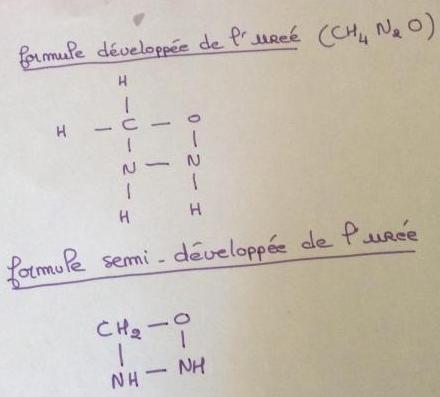 formule développée de l'ureé (CH4 N2 O)
H
|
H — C — O
| |
N — N
| |
H H
formule semi-développée de l'urée
CH2 — O
| |
NH — NH